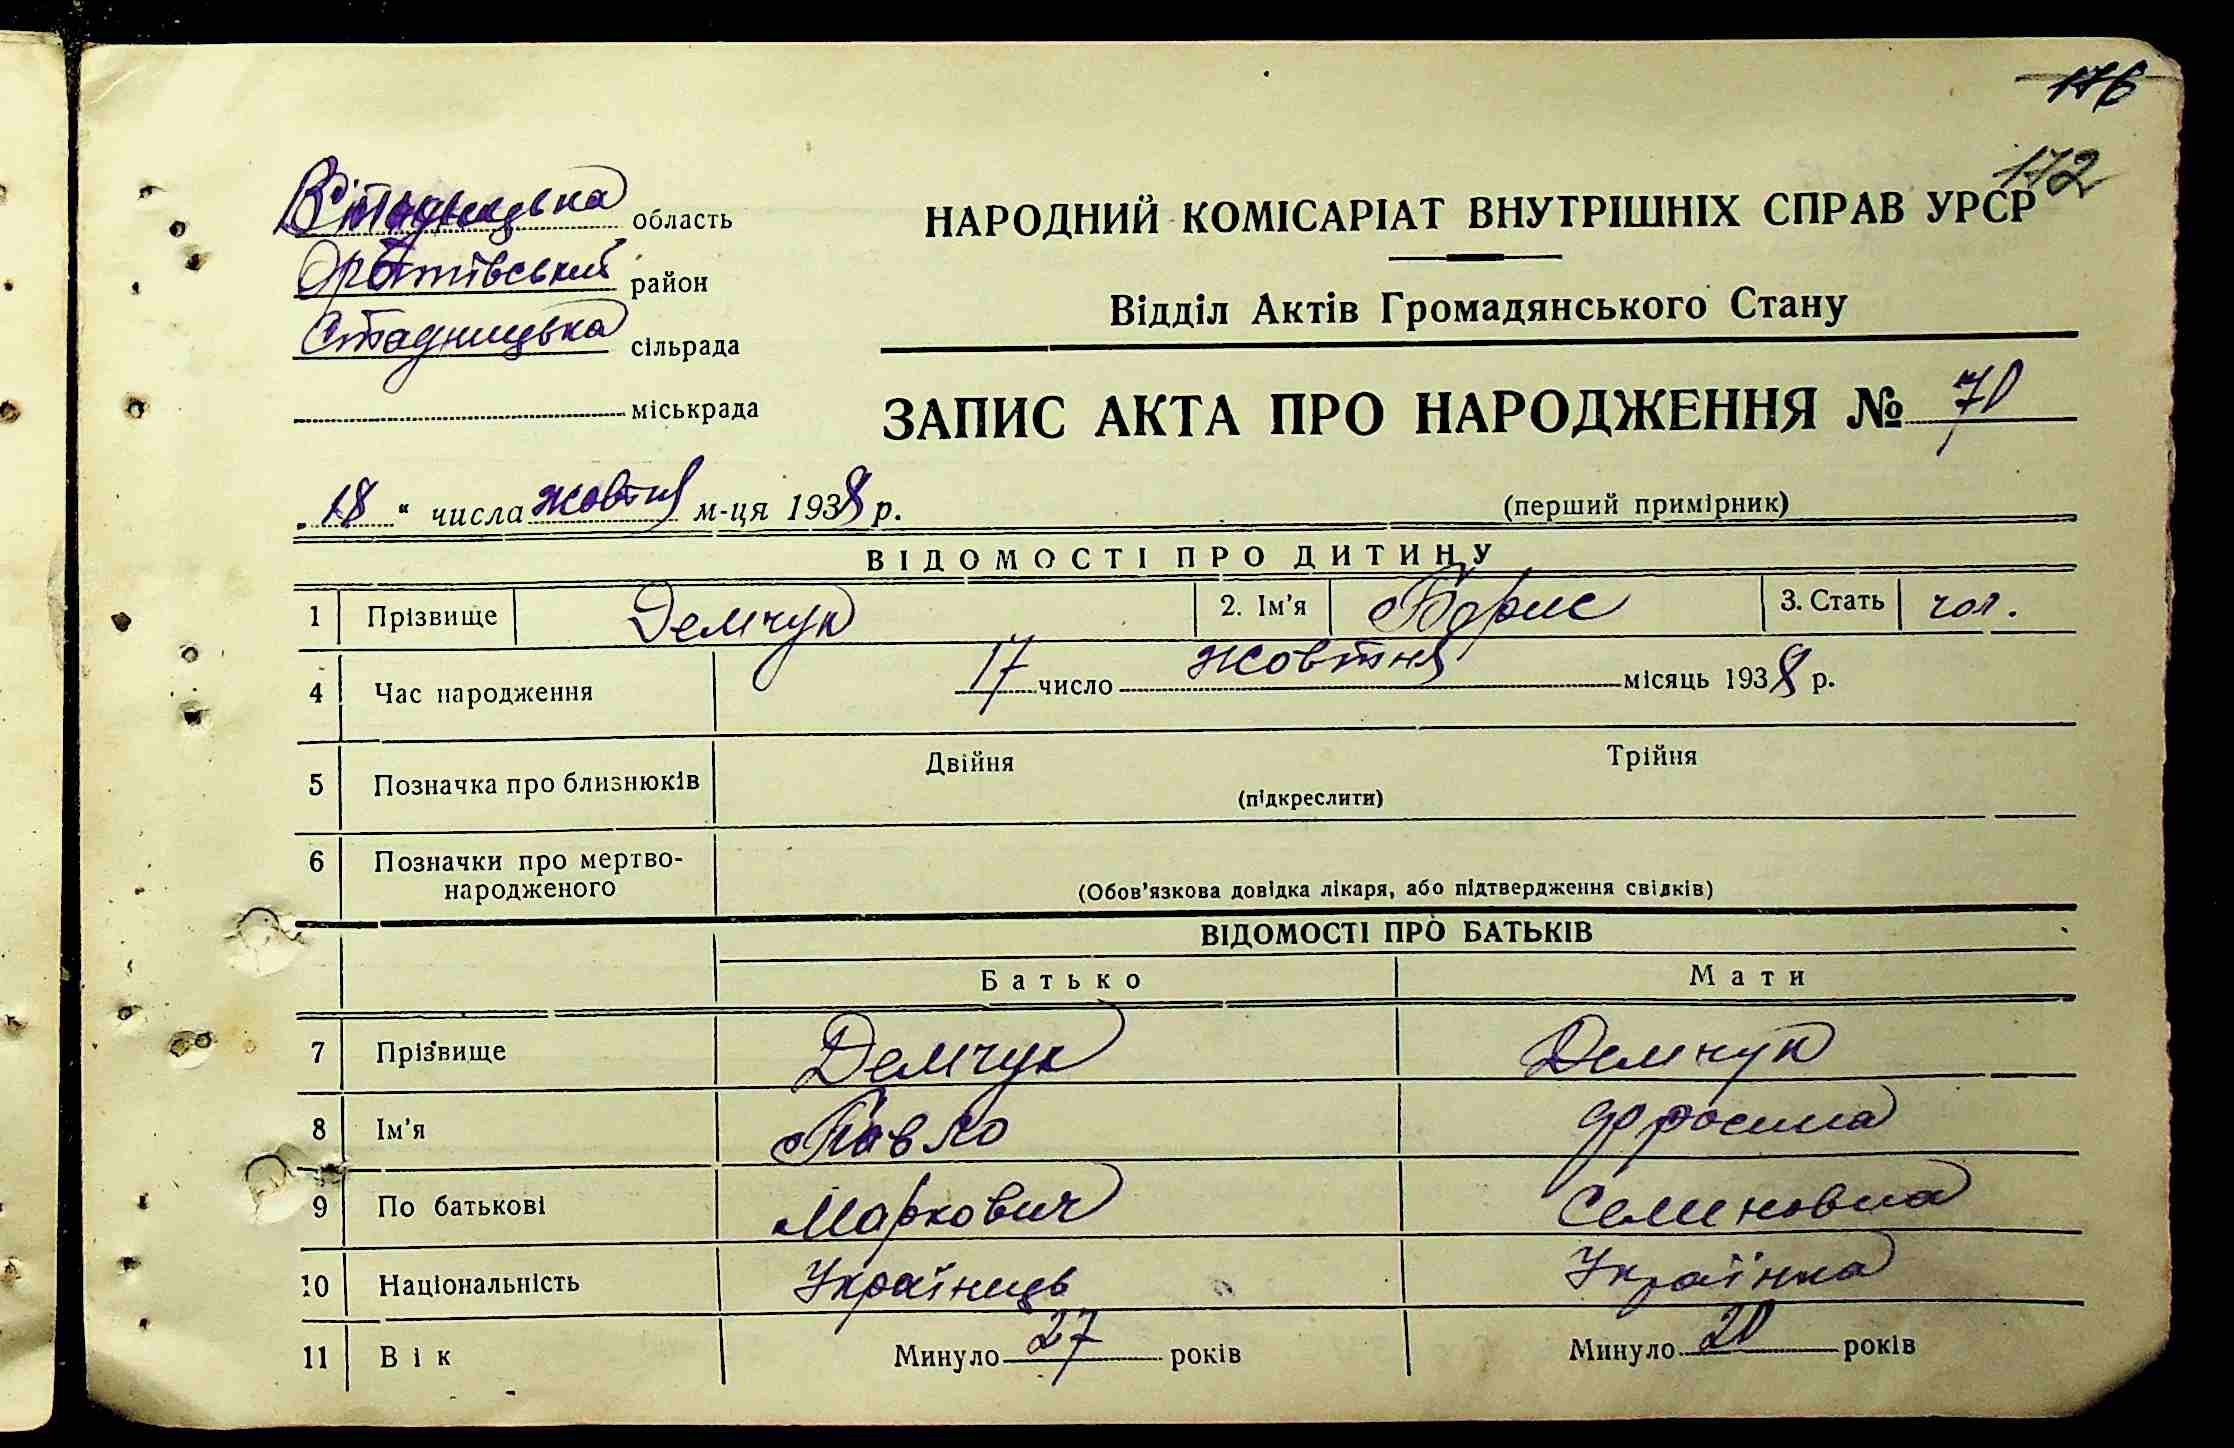 176
172
Вінницька область
Оратівський район
Стадницька сільрада
міськрада
НАРОДНИЙ КОМІСАРІАТ ВНУТРІШНІХ СПРАВ УРСР
Відділ Актів Громадянського Стану
ЗАПИС АКТА ПРО НАРОДЖЕННЯ № 70
„18“ числа жовтня м-ця 1938 р.
(перший примірник)
ВІДОМОСТІ ПРО ДИТИНУ
1 Прізвище Демчук 2. Ім'я Борис 3. Стать чол.
4 Час народження 17 число жовтня місяць 1938 р.
5 Позначка про близнюків Двійня Трійня
(підкреслити)
6 Позначки про мертво-
народженого
(Обов'язкова довідка лікаря, або підтвердження свідків)
ВІДОМОСТІ ПРО БАТЬКІВ
Батько Мати
7 Прізвище Демчук Демчук
8 Ім'я Павло Фросина
9 По батькові Маркович Семеновна
10 Національність Українець Українка
11 Вік Минуло 27 років Минуло 20 років